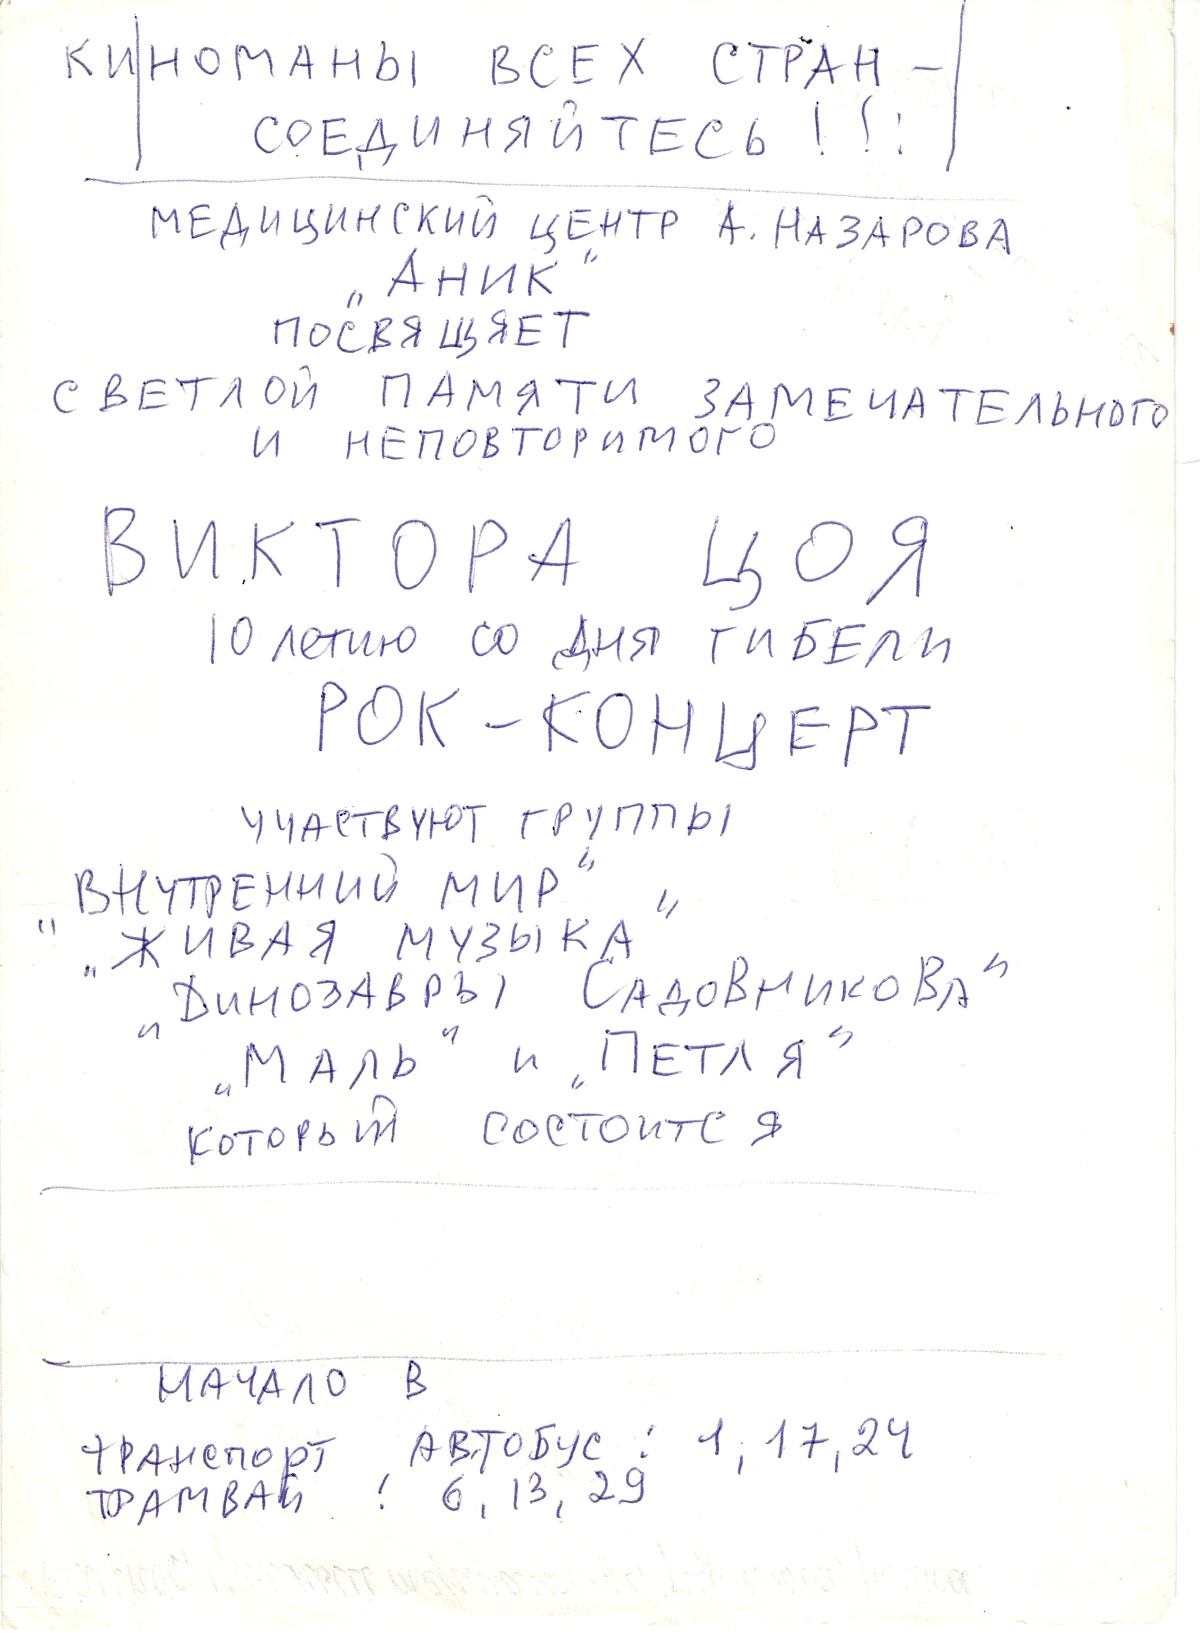 КИНОМАНЫ ВСЕХ СТРАН –
СОЕДИНЯЙТЕСЬ !!!
МЕДИЦИНСКИЙ ЦЕНТР А. НАЗАРОВА
„АНИК“
ПОСВЯЩЯЕТ
СВЕТЛОЙ ПАМЯТИ ЗАМЕЧАТЕЛЬНОГО
И НЕПОВТОРИМОГО
ВИКТОРА ЦОЯ
10 летию СО ДНЯ ГИБЕЛИ
РОК – КОНЦЕРТ
УЧАСТВУЮТ ГРУППЫ
„ВНУТРЕННИЙ МИР“
„ЖИВАЯ МУЗЫКА“
„ДИНОЗАВРЫ САДОВНИКОВА“
„МАЛЬ“ и „ПЕТЛЯ“
КОТОРЫЙ СОСТОИТСЯ
НАЧАЛО В
ТРАНСПОРТ АВТОБУС : 1, 17, 24
ТРАМВАЙ : 6, 13, 29